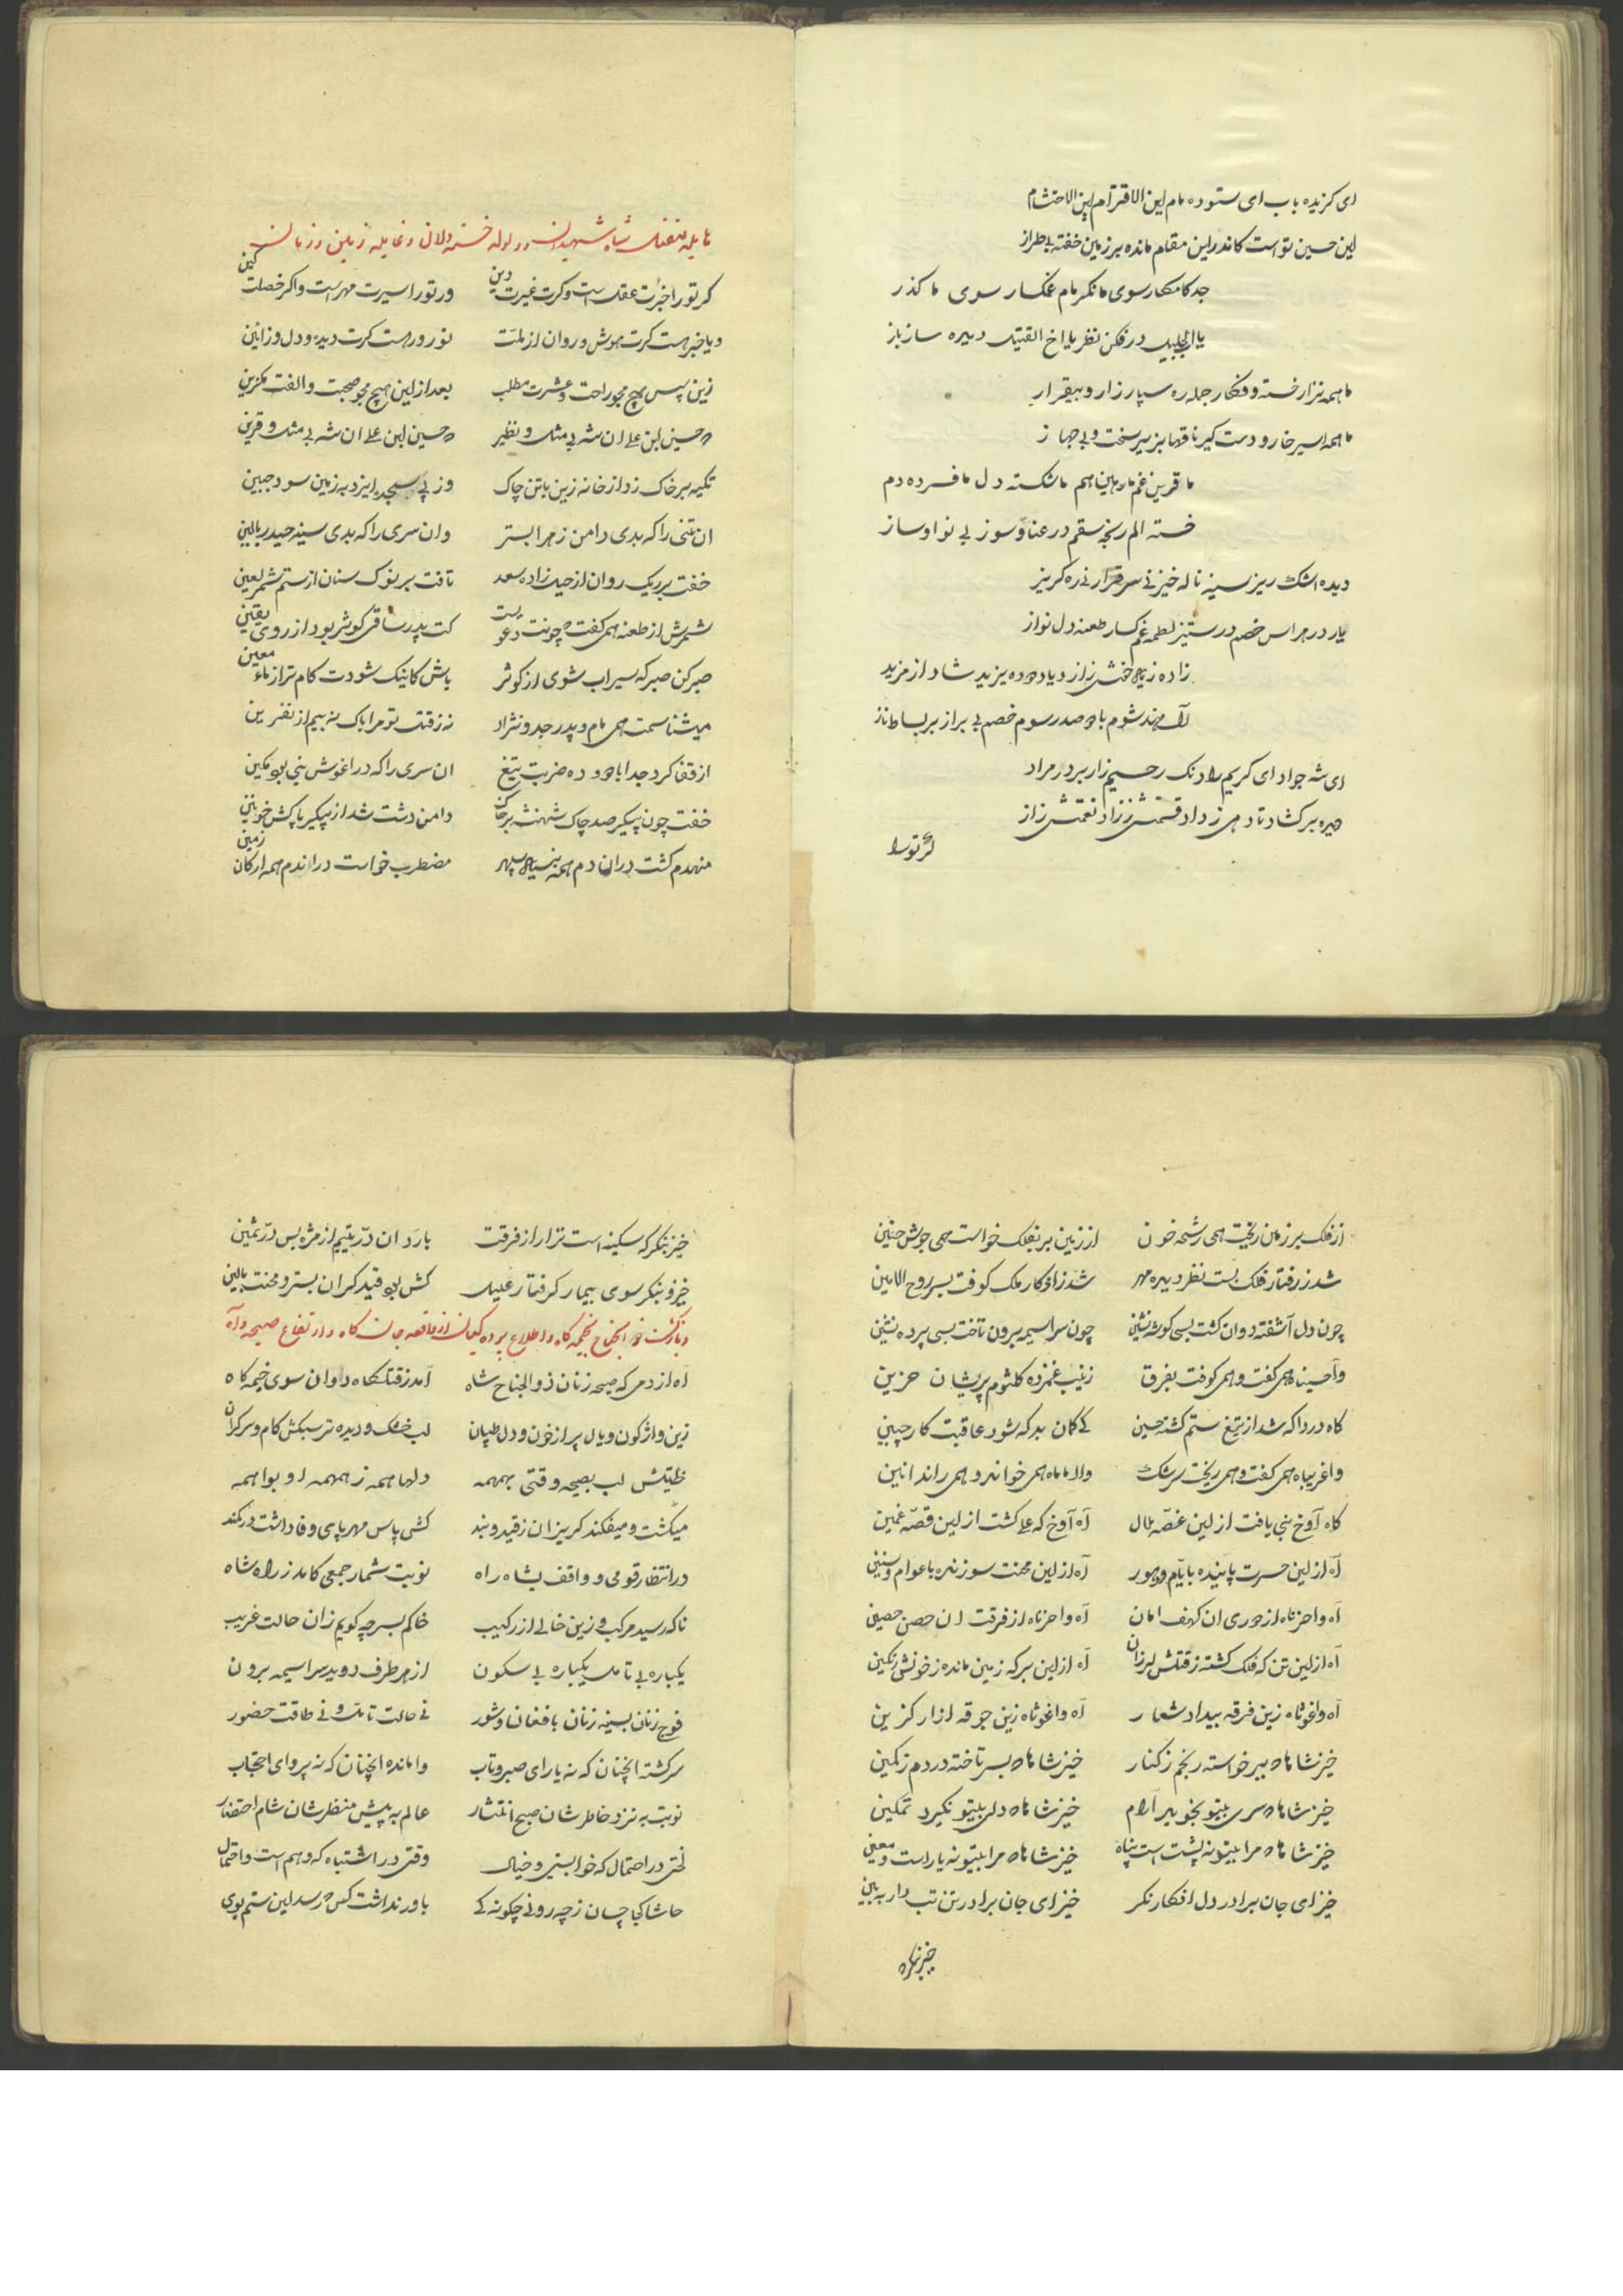 ای کزیده باب ای ستوده مام این الاقترام این الاحتشام
این حسین تو است کاندر این مقام مانده بر زمین خفته بی طراز
جد کامکار سوی ما نکر مام غمکسار سوی ما کذر
یا اب الجلیل در فکن نظر یا اخ القتیل دیده ساز باز
ما همه نزار خسته و فکار جمله ره سپار زار و بیقرار
ما همه اسیر خار و دستکیر ناقها بزیر سخت و بی جهاز
ما قرین غم ما رهین هم ما شکسته دل ما فسرده دم
خسته الم رنجه سقم در عنا و سوز بی نوا و ساز
دیده اشک ریز سینه ناله خیز نی سر قرار نی ره کریز
یار در هراس خصم در ستیز لطمه غمکسار طعنه دل نواز
زاده زیاد خوش زازدیاد دوده یزید شاد از مزید
آل هند شوم با صد رسوم خصم بی براز بر بساط ناز
ای شه جواد ای کریم راد نک رحیم زار بر در مراد
چهره بر کشاد تا دهی ز داد قسمتش ز زاد نعمتش ز از
کر تو را
کر تو را خبرت عقلست و کرت غیرت دین ور تو را سیرت مهر است و اکر خصلت کین
ویا خبر هست کرت هوش و روان از ملت نور ور هست کرت دیده و دل وز ائین
زین پس هیچ مجو راحت و عشرت مطلب بعد از این هیچ مجو صحبت و الفت مکزین
که حسین ابن علی ان شه بی مثل و نظیر که حسین ابن علی ان شه بی مثل و قرین
تکیه بر خاک زد از خانه زین با تن چاک وز پی سجده ایزد به زمین سود جبین
ان تنی را که بدی دامن زهرا بستر وان سری را که بدی سینه حیدر بالین
خفت بر ریک روان از حیل زاده سعد تافت بر نوک سنان از ستم شمر لعین
شمرش از طعنه همی کفت که چونت دعویست کت پدر ساقی کوثر بود از روی یقین
صبر کن صبر که سیراب شوی از کوثر باش کانیک شودت کام تر از ماء معین
میشناسمت همی مام و پدر جد و نژاد نه ز قتل تو مرا باک نه بیم از نفرین
از قفا کرد جدا با دو و ده ضربت تیغ ان سری را که در اغوش نبی بود مکین
خفت چون پیکر صد چاک شهنشه بر خاک دامن دشت شد از پیکر پاکش خونین
منهدم کشت در ان دم همه بنیاد سپهر مضطرب خواست در اندم همه ارکان زمین
از فلک بر زمان ریخت همی رشحه خون از زمین بر بفلک خواست همی جوش حنین
شد ز رفتار فلک بست نظر دیده مهر شد ز اذکار ملک کوفت بسر روح الامین
چون دل آشفته دوان کشت بسی کوشه نشین چون سراسیمه برون تاخت بسی پرده نشین
واحسیناه همی کفت و همی کوفت بفرق زینب غمزده کلثوم پریشان حزین
کاه دردا که شد از تیغ ستم کشته حسین کی کمان بد که شود عاقبت کار چنین
واغریباه همی کفت و همی ریخت سرشک والاماماه همی خواند و همی راند انین
کاه آوخ نبی یافت از این غصه ملال آه آوخ که علی کشت از این قصه غمین
آه از این حسرت پاینده بایام و دهور آه از این محنت سوزنده باعوام و سنین
آه واحزناه از دوری ان کهف امان آه واحزناه از فرقت ان حصن حصین
آه از این تن که فلک کشته ز قتلش لرزان آه از این سر که زمین مانده ز خونش رنکین
آه واغوثاه زین فرقه بیداد شعار آه واغوثاه زین جوقه ازار کزین
خیز شاها که ببر خواسته رنجم ز کنار خیز شاها که بسر تاخته دردم ز کمین
خیز شاها که سری بیتو نجوید آرام خیز شاها که دلی بیتو نکیرد تمکین
خیز شاها که مرا بیتو نه پشت است و پناه خیز شاها که مرا بیتو نه یار است و معین
خیز ای جان برادر دل افکار نکر خیز ای جان برادر تن تب دار ببین
خیز بنکر که
خیز بنکر که سکینه است نزار از فرقت بارد ان در یتیم از مژه بس در ثمین
خیز و بنکر سوی بیمار کرفتار علیل کش بود قید کران بستر و محنت بالین
آه از دمی که صیحه زنان ذو الجناح شاه آمد ز قتلکاه دوان سوی خیمه کاه
زین واژکون و یال پر از خون و دل طپان لب خشک و دیده تر سبکش کام و سر کران
خلیتش لب بصیحه وقتی بهمهمه دلها همه ز همهمه او بواهمه
میکشت و میفکند کریزان ز قید و بند کش پاس مهر پای وفا داشت در کمند
در انتظار قومی و واقف بشاه راه نوبت شمار جمعی کامد ز راه شاه
ناکه رسید مرکب و زین خالی از رکیب خاکم بسر چه کویم زان حالت غریب
یکباره بی تامل یکباره بی سکون از هر طرف دوید سراسیمه برون
فوج زنان بسینه زنان با فغان و شور نی حالت تامل و نی طاقت حضور
سر کشته انچنان که نه یارای صبر و تاب وامانده انچنان که نه پروای احتجاب
نوبت به نزد خاطرشان صبح انتشار عالم به پیش منظرشان شام احتضار
لختی در احتمال که خوابستی و خیال وقتی در اشتباه که وهم است و احتمال
حاشا کجا چسان ز چه رو نی چکونه کی باور نداشت کس که رسد این ستم بوی